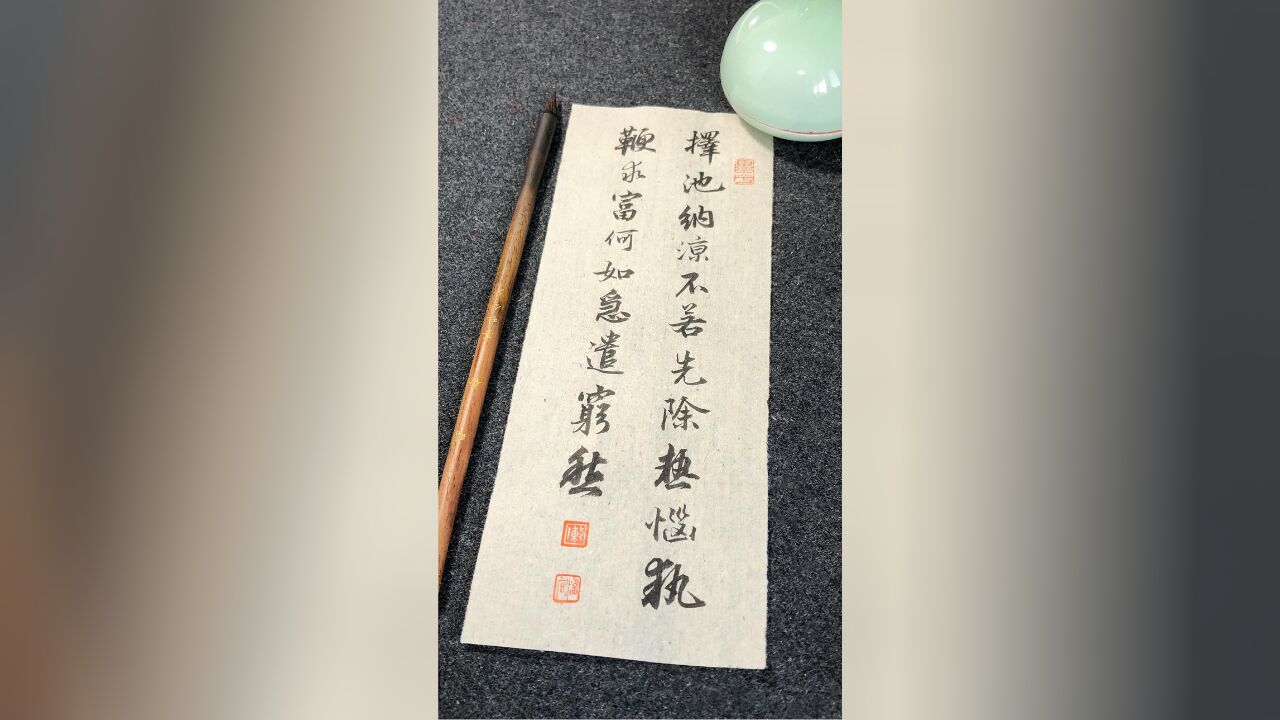 擇池納涼不若先除熱惱執
鞭求富何如急遣窮愁